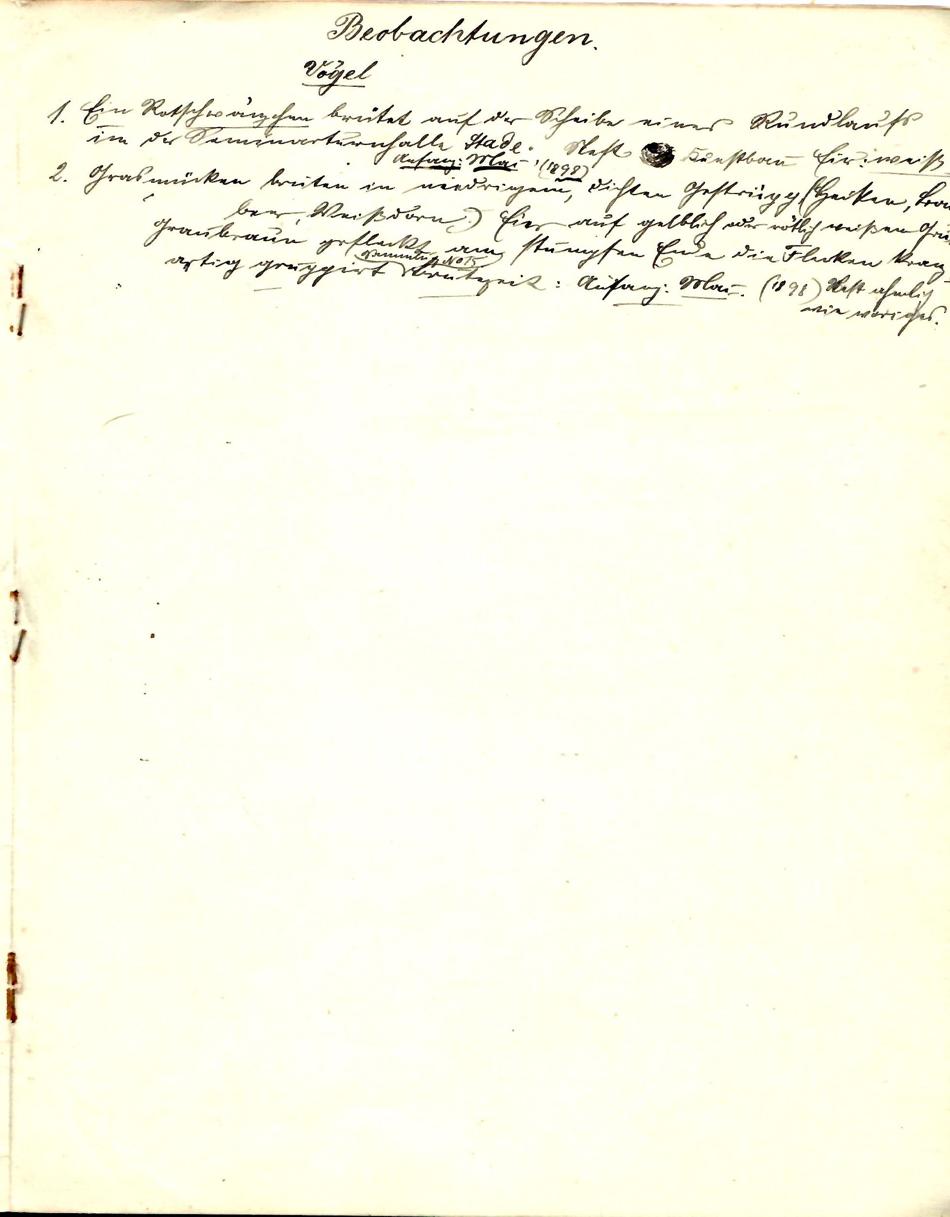 Beobachtungen.
Vögel
1. Ein Rotschwänzchen brütet auf der Scheibe eines Rundlaufs
in der Seminarturnhalle Stade. Nest Kunstbau Eier: weiß
Anfang: Mai. (1898)
2. Grasmücken brüten in niedrigem, dichten Gestrüpp (Hecken, Brom
beer, Weißdorn.) Eier auf gelblich oder rötlich weißen
graubraun gefleckt am stumpfen Ende die Flecken kranz-
artig gruppirt Brutzeit: Anfang: Mai. (1898) Nest ähnlich
wie voriges.